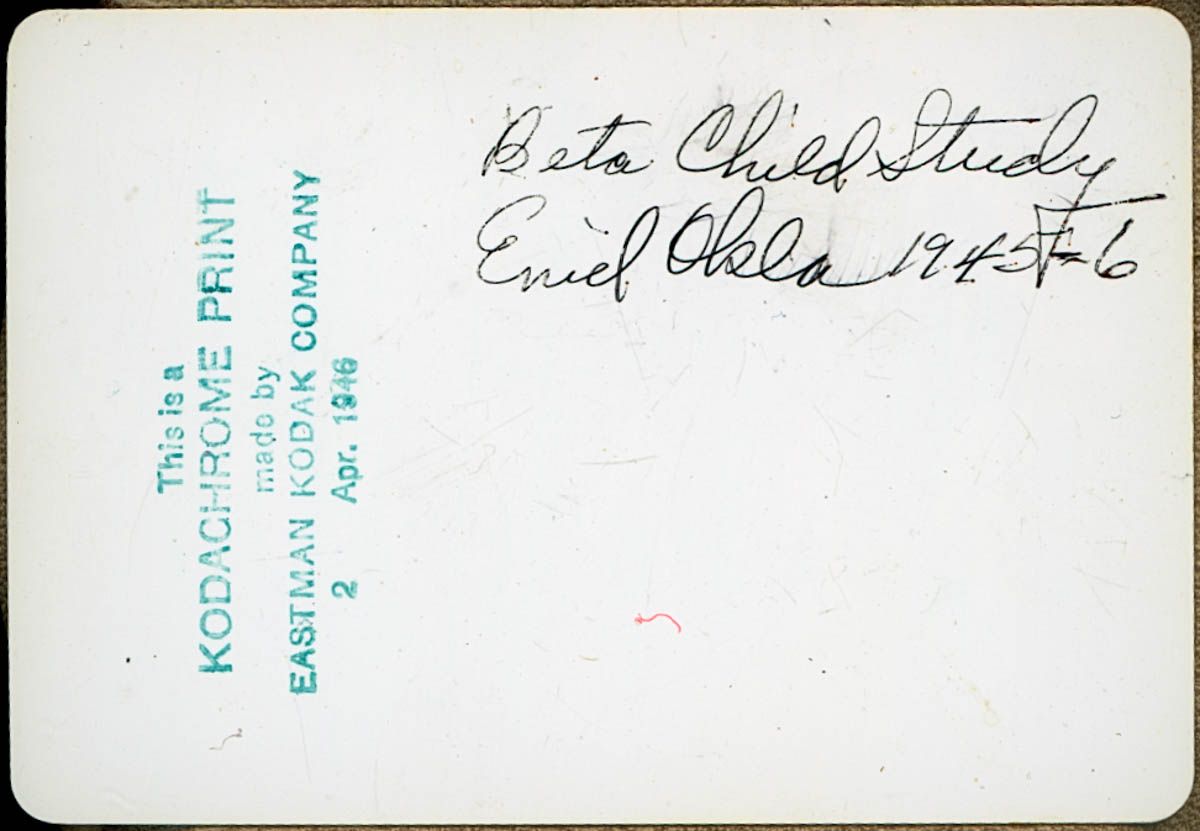 Beta Child Study
Enid Okla 1945-6
This is a
KODACHROME PRINT
made by
EASTMAN KODAK COMPANY
2 Apr. 1946